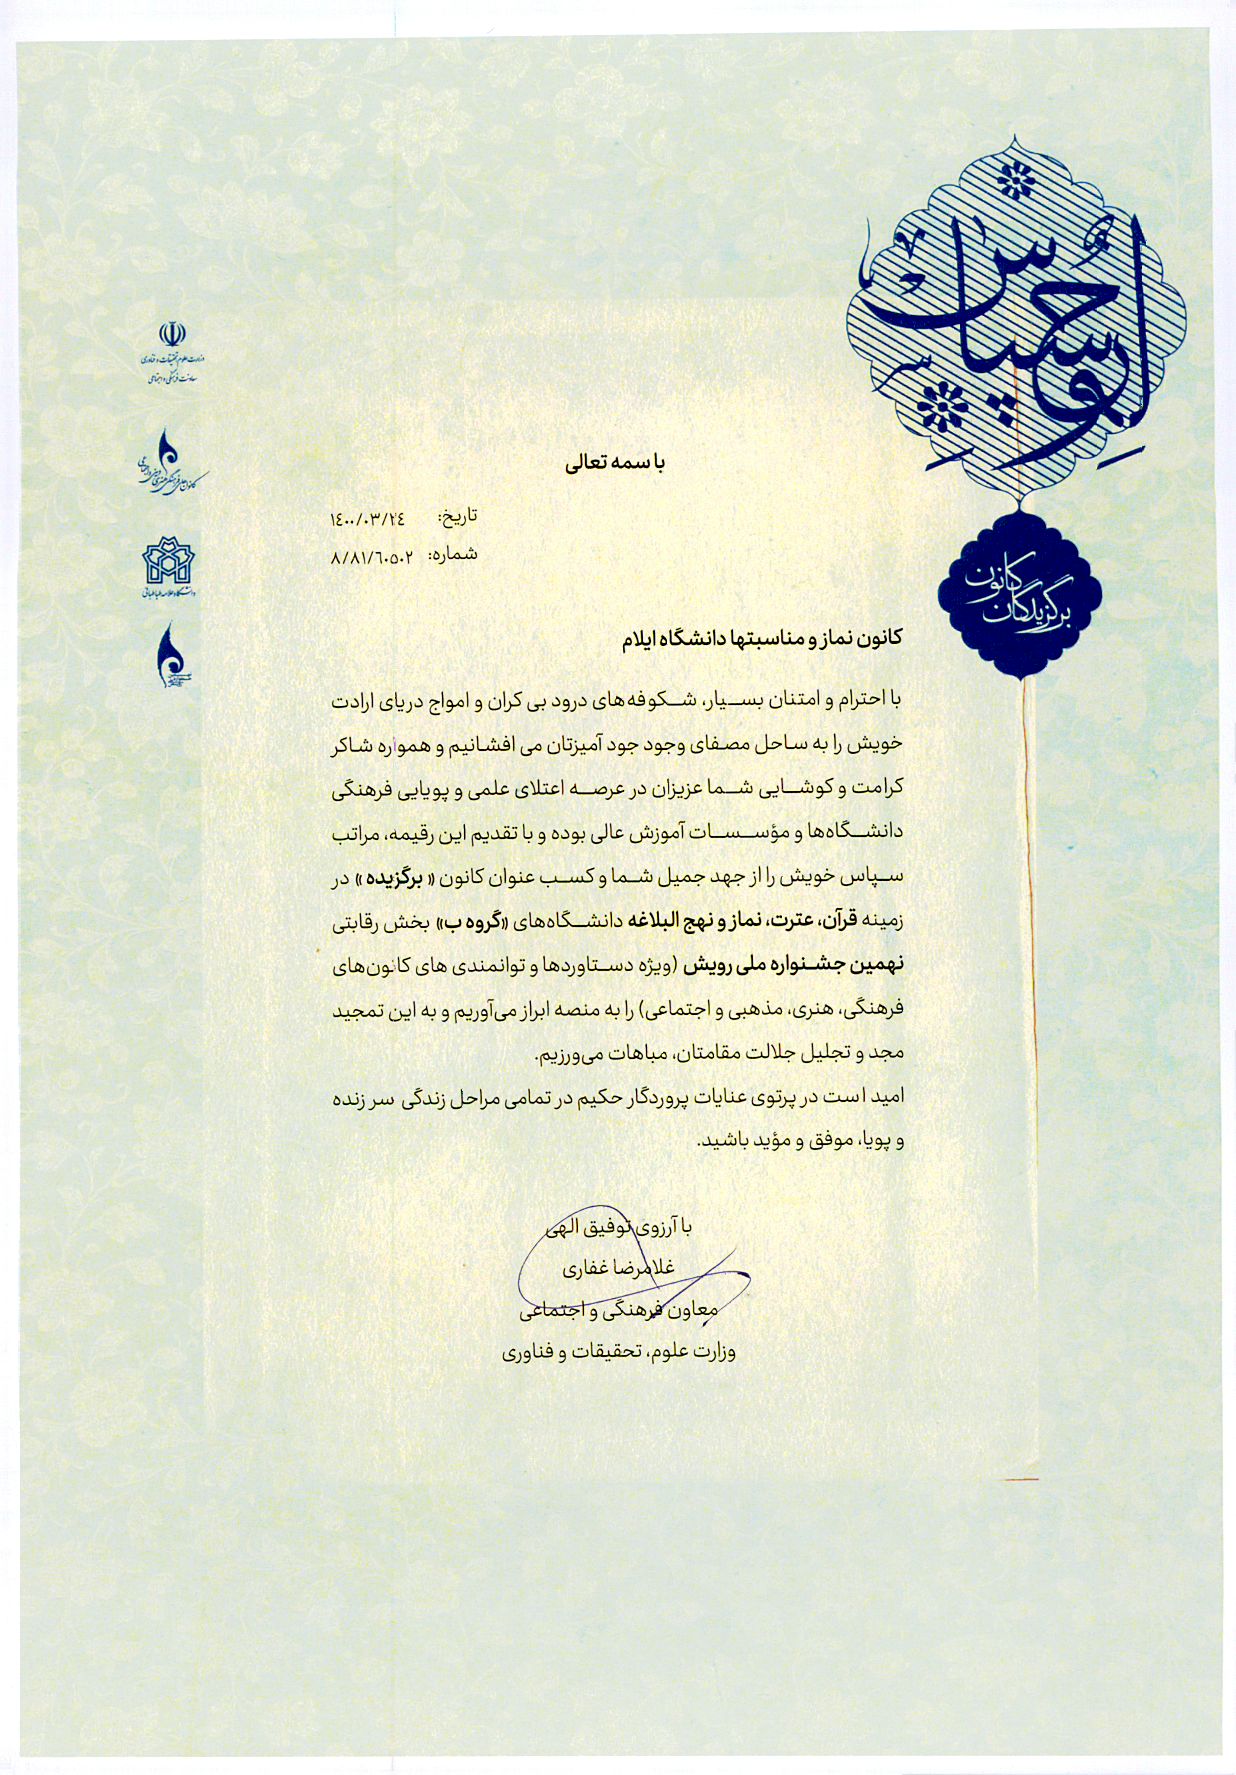 لوح سپاس
کانون
برگزیدگان
وزارت علوم تحقیقات و فناوری
معاونت فرهنگی و اجتماعی
دانشگاه علامه طباطبائی
با سمه تعالی
تاریخ: ١٤٠٠/٠٣/٢٤
شماره: ٨/٨١/٦٠٥٠٢
کانون نماز و مناسبتها دانشگاه ایلام
با احترام و امتنان بسیار، شکوفه‌های درود بی کران و امواج دریای ارادت
خویش را به ساحل مصفای وجود جود آمیزتان می افشانیم و همواره شاکر
کرامت و کوشایی شما عزیزان در عرصه اعتلای علمی و پویایی فرهنگی
دانشگاه‌ها و مؤسسات آموزش عالی بوده و با تقدیم این رقیمه، مراتب
سپاس خویش را از جهد جمیل شما و کسب عنوان کانون « برگزیده » در
زمینه قرآن، عترت، نماز و نهج البلاغه دانشگاه‌های «گروه ب» بخش رقابتی
نهمین جشنواره ملی رویش (ویژه دستاوردها و توانمندی های کانون‌های
فرهنگی، هنری، مذهبی و اجتماعی) را به منصه ابراز می‌آوریم و به این تمجید
مجد و تجلیل جلالت مقامتان، مباهات می‌ورزیم.
امید است در پرتوی عنایات پروردگار حکیم در تمامی مراحل زندگی سر زنده
و پویا، موفق و مؤید باشید.
با آرزوی توفیق الهی
غلامرضا غفاری
معاون فرهنگی و اجتماعی
وزارت علوم، تحقیقات و فناوری